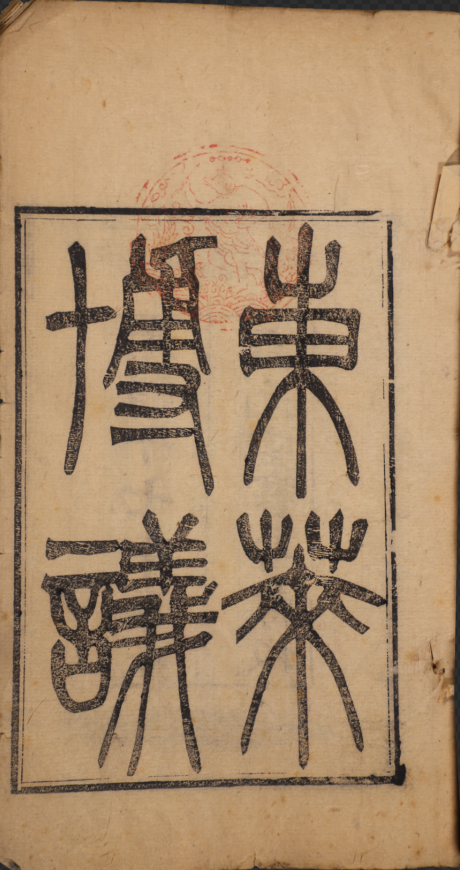 東萊
博議